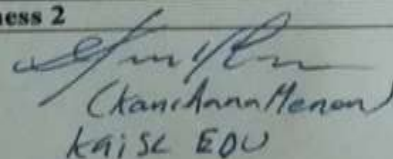 ness 2
(Kanchana Menon)
KaiSL EDU